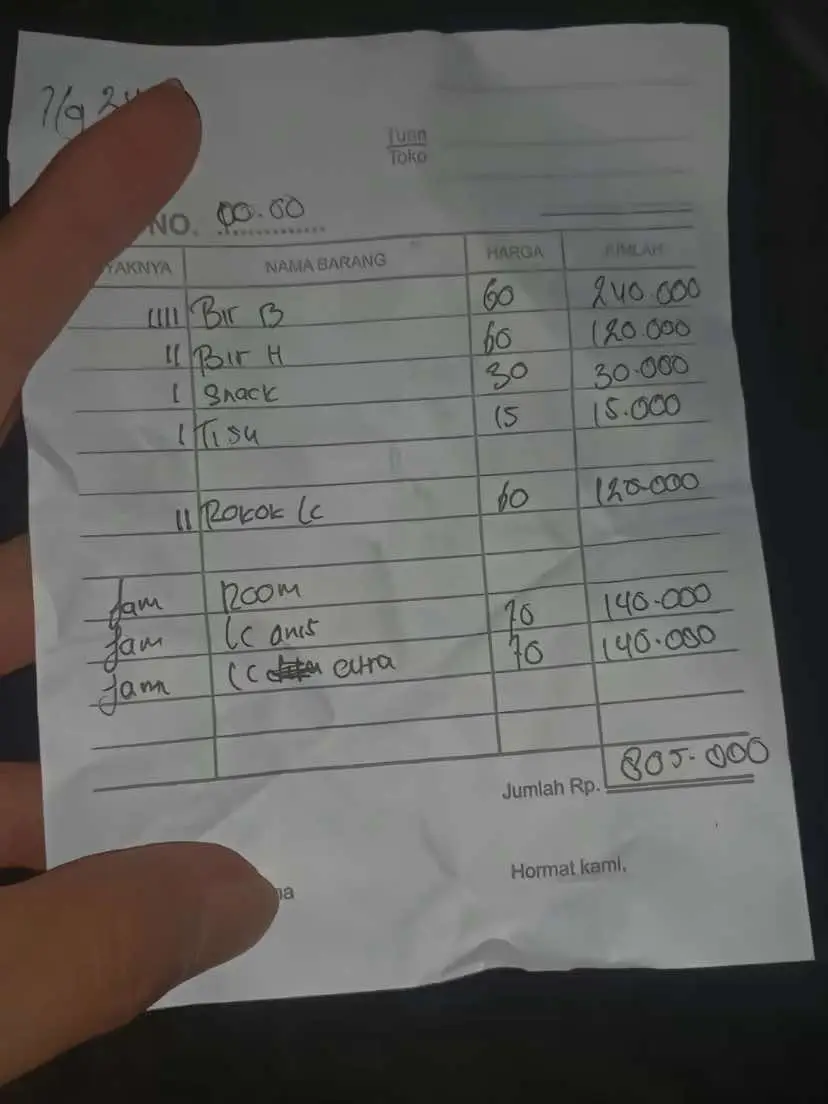 Tuan
Toko
NO. 00.00
YAKNYA NAMA BARANG HARGA JUMLAH
IIII Bir B 60 240.000
II Bir H 60 120.000
I Snack 30 30.000
I Tisu 15 15.000
II Rokok Lc 60 120.000
Jam Room
Jam Lc anis 70 140.000
Jam Lc 70 140.000
Jumlah Rp. 805.000
Hormat kami,